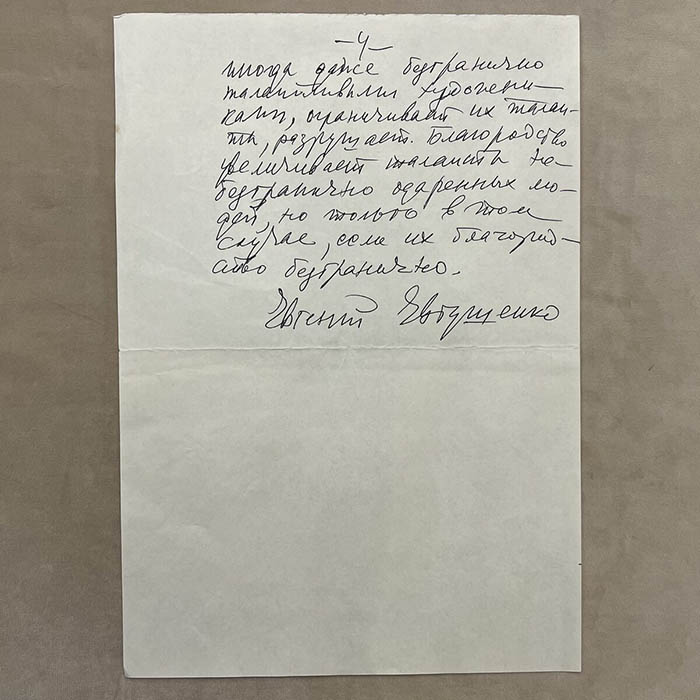 -4-
иногда даже безгранично
талантливыми художни-
ками, ограничивает их талан-
ты, разрушает. Благородство
увеличивает таланты не-
безгранично одаренных лю-
дей, но только в том
случае, если их благород-
ство безгранично.
Евгений Евтушенко